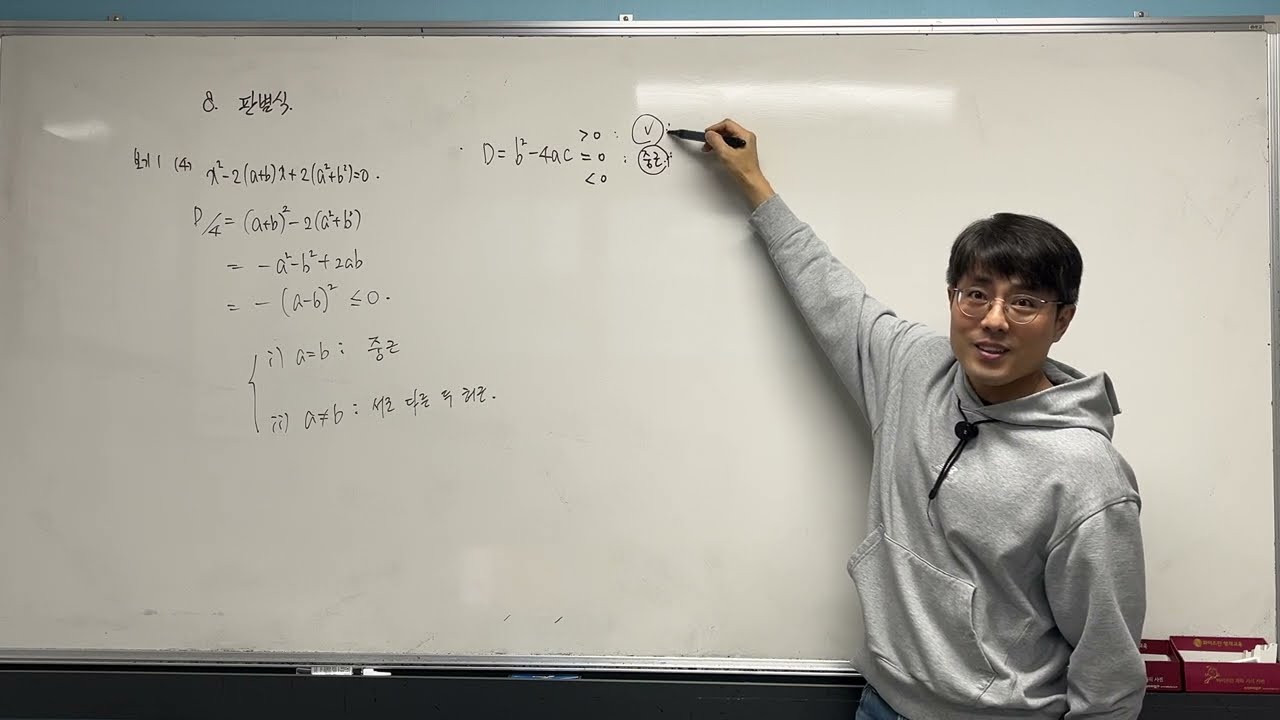 8. 판별식.
보기 1 (4) x²-2(a+b)x+2(a²+b²)=0.
D/4 = (a+b)²-2(a²+b²)
= -a²-b²+2ab
= -(a-b)² ≤0.
i) a=b : 중근
ii) a≠b : 서로 다른 두 허근.
D=b²-4ac >0 : V :
=0 : 중근 :
<0